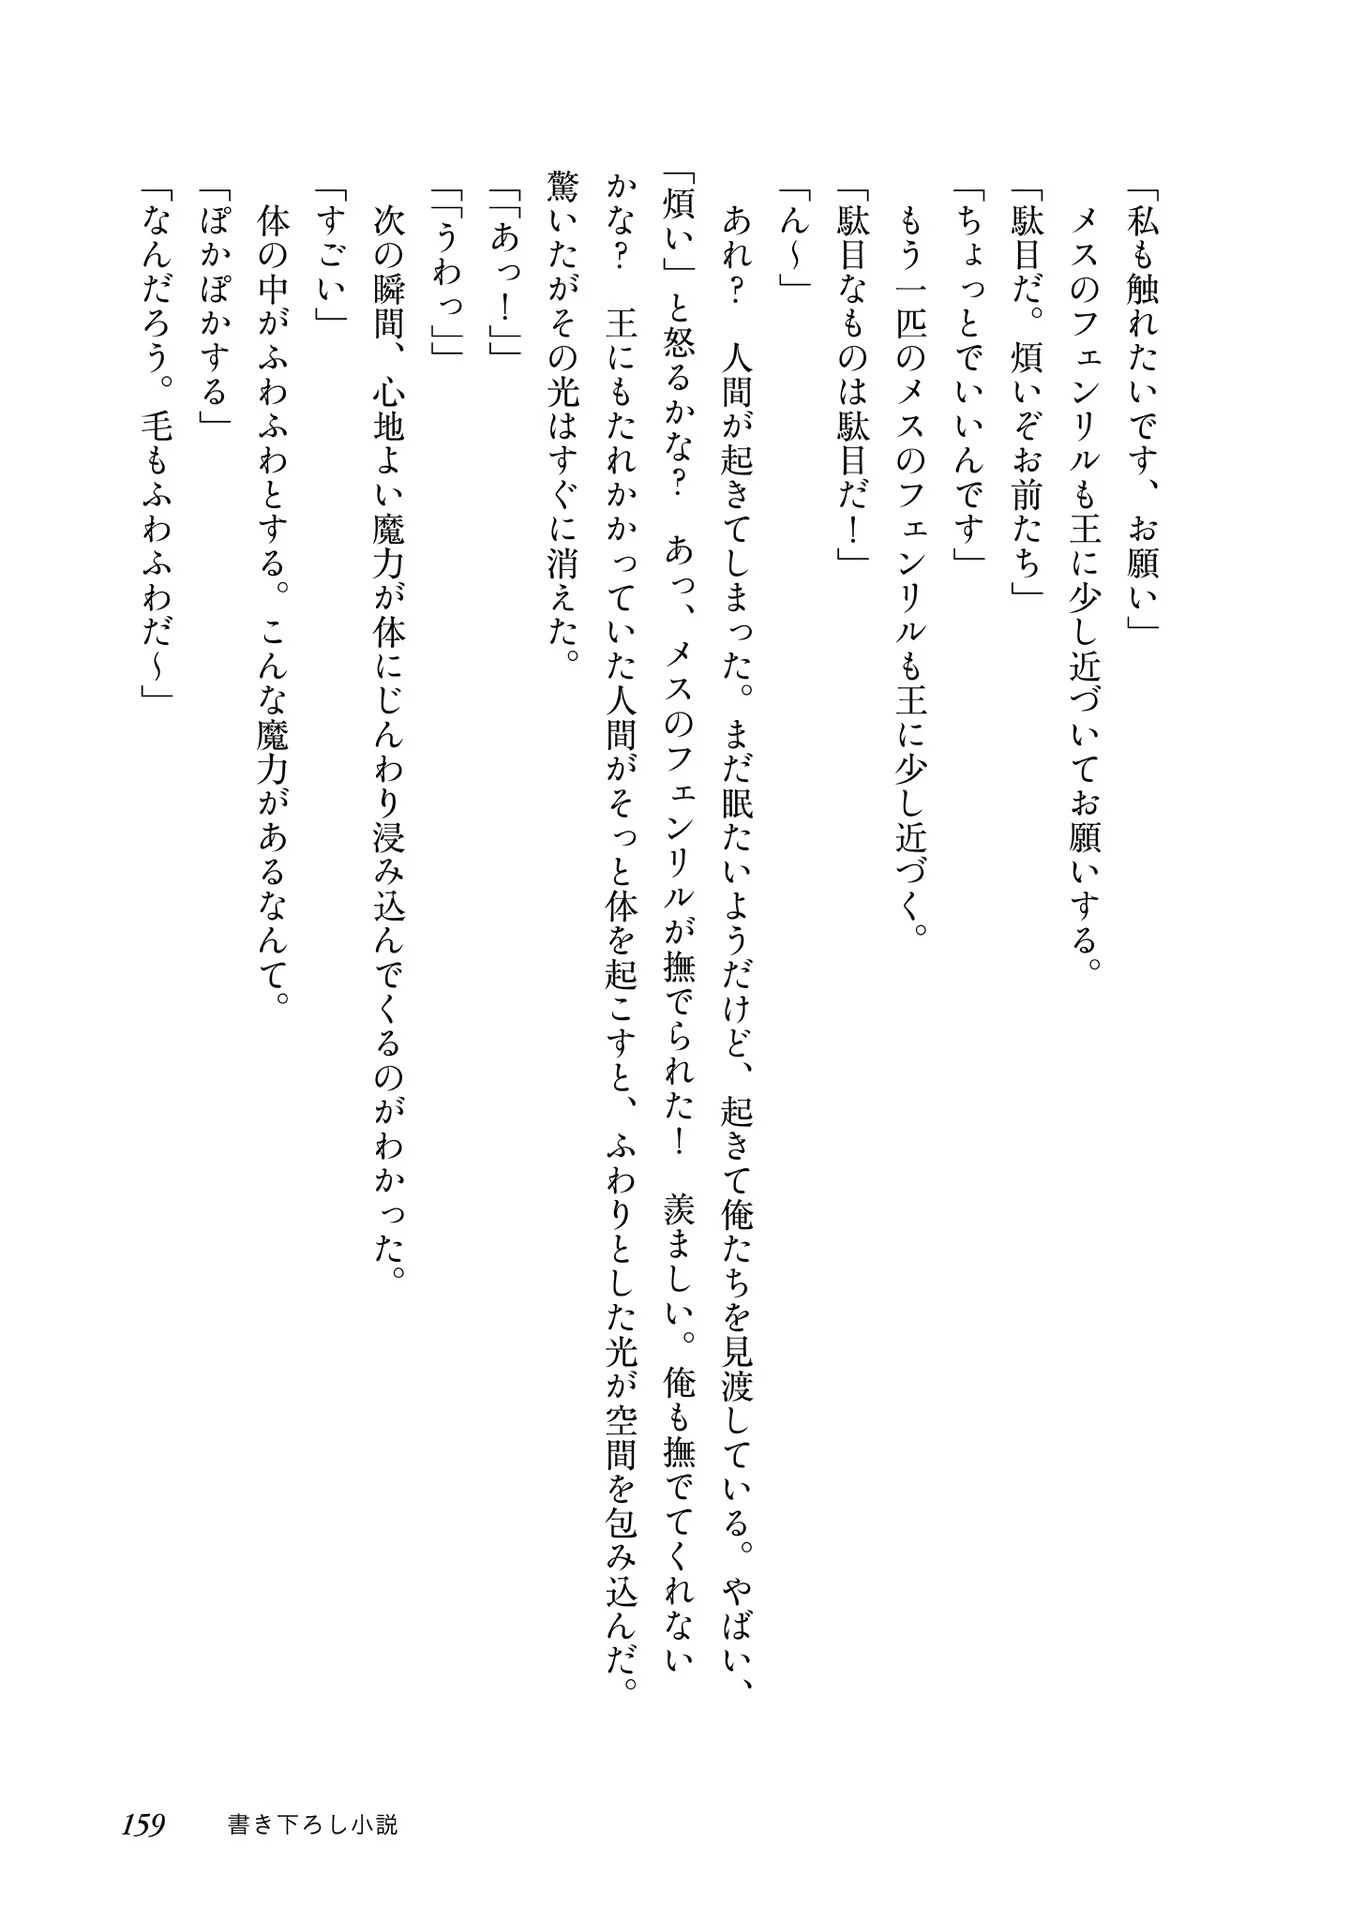 「私も触れたいです、お願い」
　メスのフェンリルも王に少し近づいてお願いする。
「駄目だ。煩いぞお前たち」
「ちょっとでいいんです」
　もう一匹のメスのフェンリルも王に少し近づく。
「駄目なものは駄目だ！」
「ん～」
　あれ？　人間が起きてしまった。まだ眠たいようだけど、起きて俺たちを見渡している。やばい、
「煩い」と怒るかな？　あっ、メスのフェンリルが撫でられた！　羨ましい。俺も撫でてくれない
かな？　王にもたれかかっていた人間がそっと体を起こすと、ふわりとした光が空間を包み込んだ。
驚いたがその光はすぐに消えた。
「「あっ！」」
「「うわっ」」
　次の瞬間、心地よい魔力が体にじんわり浸み込んでくるのがわかった。
「すごい」
　体の中がふわふわとする。こんな魔力があるなんて。
「ぽかぽかする」
「なんだろう。毛もふわふわだ～」
159　書き下ろし小説